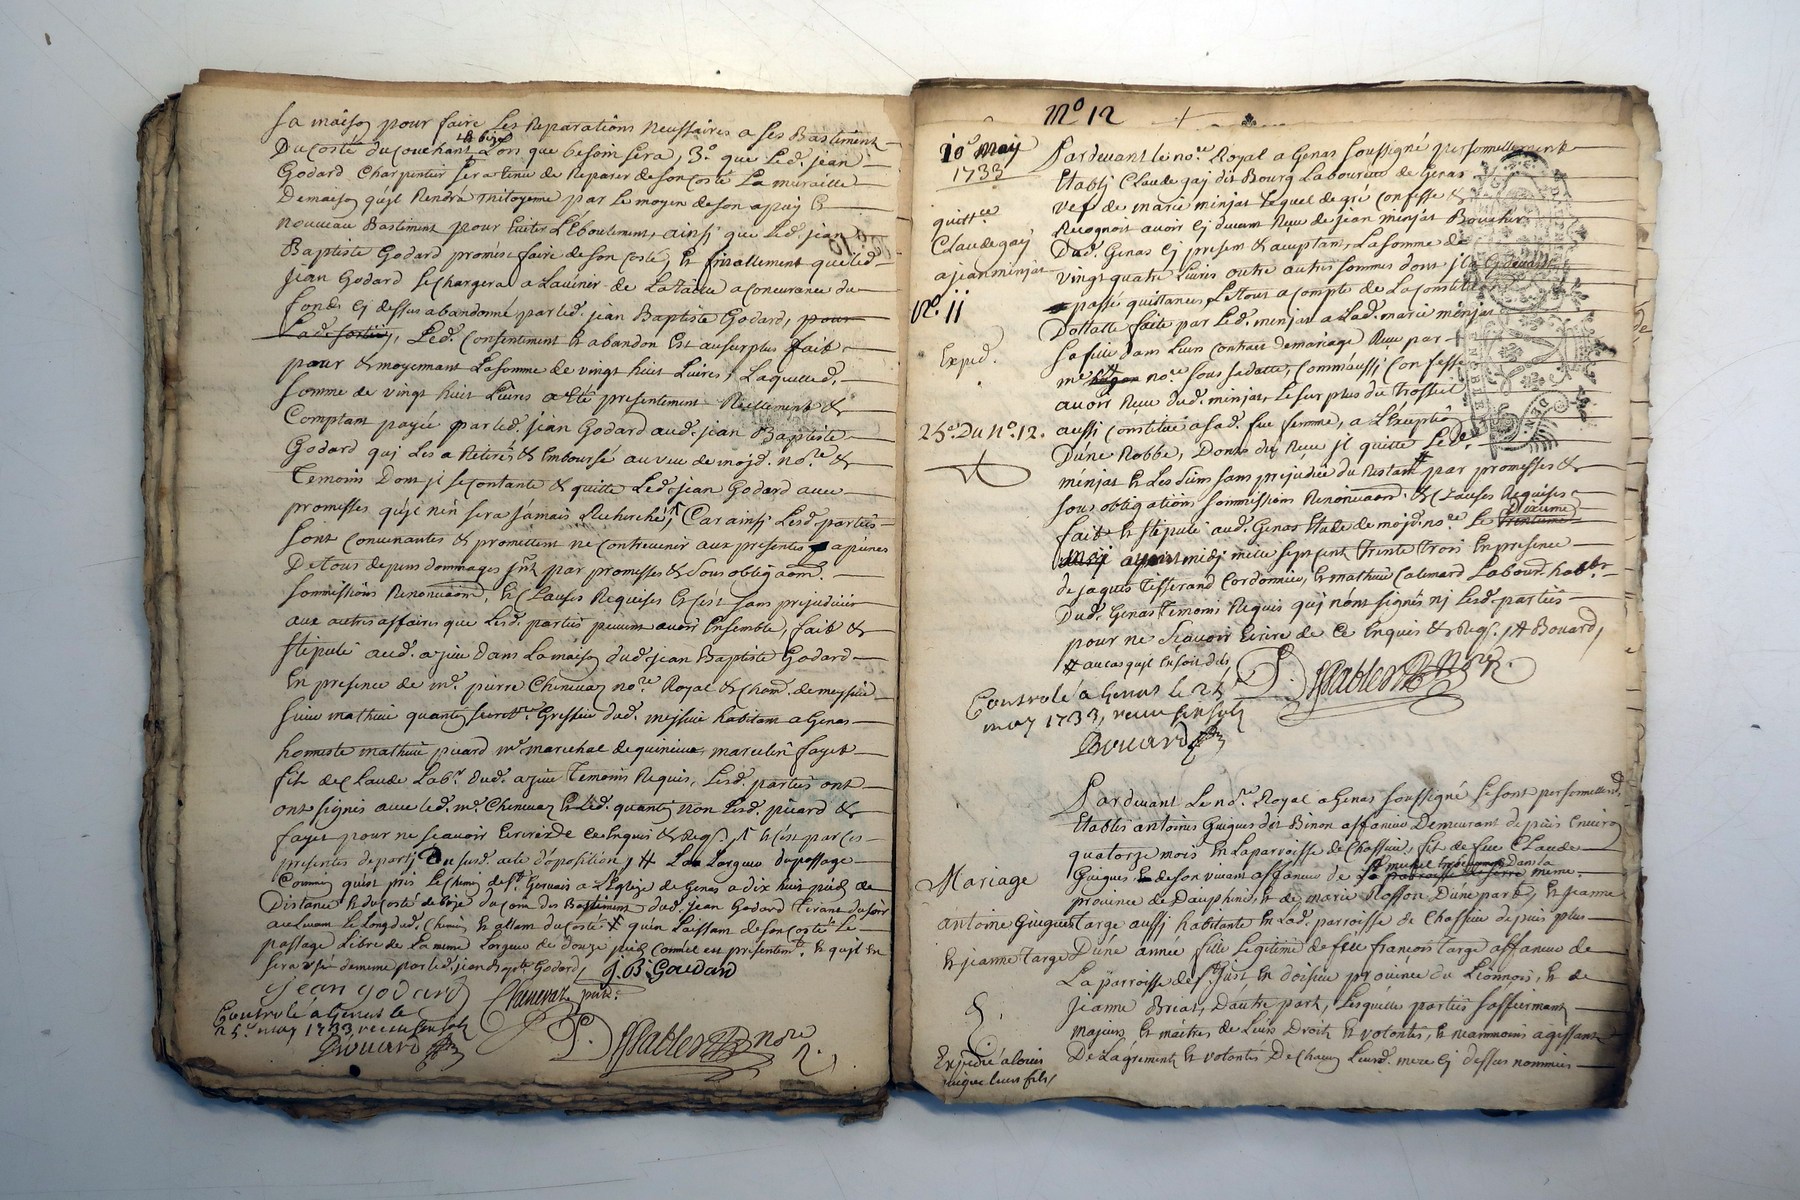 sa maison pour faire Les Reparations Neussaires a ses Bastiment
Du costé du couchant et bize Lors que besoin sera, 3.° que Led. jean
Godard Charpentier sera tenu de Reparer de son costé La muraille
De maison qu'jl Rendra mitoyenne par Le moyen de son apuy Et
nouveau Bastiment pour Euiter L'Eboulement, ainsj que Led. jean
Baptiste Godard promis faire de son costé, Et finallement que led.
jean Godard se chargera a L'auenir de La Taille a concurance du
fonds cj dessus abandonné par led. jean Baptiste Godard, pour
Led. Consentiment Et abandon Est au surplus fait
pour & moyennant La somme de vingt huit Liures, Laquelle d.
somme de vingt huit Liures a Eté presentement Reellement &
Comptant payée par led. jean Godard aud. jean Baptiste
Godard quj Les a Retirés & Emboursé au veu de mojd. no.re &
Temoins Dont jl se contante & quitte Led. jean Godard auec
promesses qu'jl n'en sera jamais Recherché, Car ainsj Lesd. parties
sont conuenantes & promettent ne contreuenir aux presentes a peines
De tous depens dommages jnt. par promesses & sous obligaōns.
sommissions Renonciaōns, Et Clauses Requises Et c'est sans prejudicier
aux autres affaires que Lesd. parties peuuent auoir Ensemble, fait &
stipulé aud. azieu Dans La maison dud. jean Baptiste Godard
En presence de m.e pierre Cheneuaz no.re Royal & Chom. de meyzieu
sieur mathieu quantin secret.re Greffier dud. mejsieu habitant a Genas
honneste mathieu picard m.e marechal de quinieux, marcelin fayet
fils de Claude Lab.r dud. azieu Temoins Requis, Lesd. parties ont
ont signés auec led. m.e Cheneuaz Et Led. quantin non Lesd. picard &
fayet pour ne sçauoir Ecrire De ce Enquis & Reqs. Et c'est par ces
presentes departj Du susd. acte d'oposition, # La Largeur du passage
Commun qu'est pris Le Chemin de st. Geruais a L'Eglise de Genas a dix huit pieds de
Distance Et du costé de bize du coin des Bastiments dud. jean Godard Tirant du soir
au leuant Le Long dud. Chemin Et allant du costé quen Laissant de son costé Le
passage Libre de La meme Largeur de douze pieds Comme est presentemt. Et qu'jl En
sera usé de meme par led. jean Baptte Godard, J. B. Godard
jean godard Cheneuaz pnt.
Controlé a Genas le
25.e may 1733 receu six sols
Bouard
P. Sables no.re
R.
N° 12
10e May
1733
quitt.ce
Claude gaj
a jean minjat
N.° 11
Exped.
25.e Du N.° 12.
Pardeuant le no.re Royal a Genas soussigné personnellement
Etablj Claude gaj dit Bourg Laboureur de Genas
vef de marie minjat Lequel de gré confesse &
Recognoit auoir Ej deuant Reçu de jean minjat Boucher
Dud. Genas Ej present & acceptant, La somme de
vingt quatre Liures outre autres sommes dont jl a Ej deuant
passé quittances Le tout a compte de La constitu
Dottalle faite par Led. minjat a Lad. marie minjat
sa fille dans Leur contrait de mariage Reçu par
m.e no.re sous sa datte, comm'aussj confesse
auoir Reçu dud. minjat, Le surplus du Trossel
aussj constitué a sad. feu femme, a L'Exception
D'une Robbe, Donts du Reçu jl quitte Led.
minjat Et Les siens sans prejudice du Restant # par promesses &
sous obligations sommissions Renonciaōns. & Clauses Requises
fait Et stipulé aud. Genas Etude de mojd. no.re Le Dixieme
maj apres midj mille sept cent trente trois En presence
de jaques Tisserand Cordonnier, Et mathieu Calemard Labour. hab.ts
Dud. Genas Temoins Requis quj n'ont signés nj Lesd. parties
pour ne sçauoir Ecrire de Ce Enquis & Reqs. # Bouard,
# au cas qu'jl En soit dus,
P. Sables no.re R.
Controlé a Genas le 25
may 1733, receu six sols
Bouard
Mariage
antoine Guigues
Et jeanne Targe
Expedié a louis
guigue leurs fils
Pardeuant Le no.re Royal a Genas soussigné se sont personnellemt.
Etablis antoine Guigues dit Binon affaneur Demeurant depuis Enuiron
quatorze mois En La parroisse de Chassieu, fils de feu Claude
Guigues de son viuant affaneur de dans la meme
prouince de Dauphiné, & de marie Rosson D'une part, Et jeanne
Targe aussj habitante En Lad. parroisse de Chassieu depuis plus
D'une année fille Legitime de feu françois Targe affaneur de
La parroisse de st. just En doisieu prouince du Lionnois, & de
jeanne Briat, D'autre part, Lesquelles parties s'affirmant
majeurs, Et maitres de Leurs Droits Et volontés, Et neanmoins agissants
De L'agrement Et volontés De chacun Leursd. mere cj dessus nommées